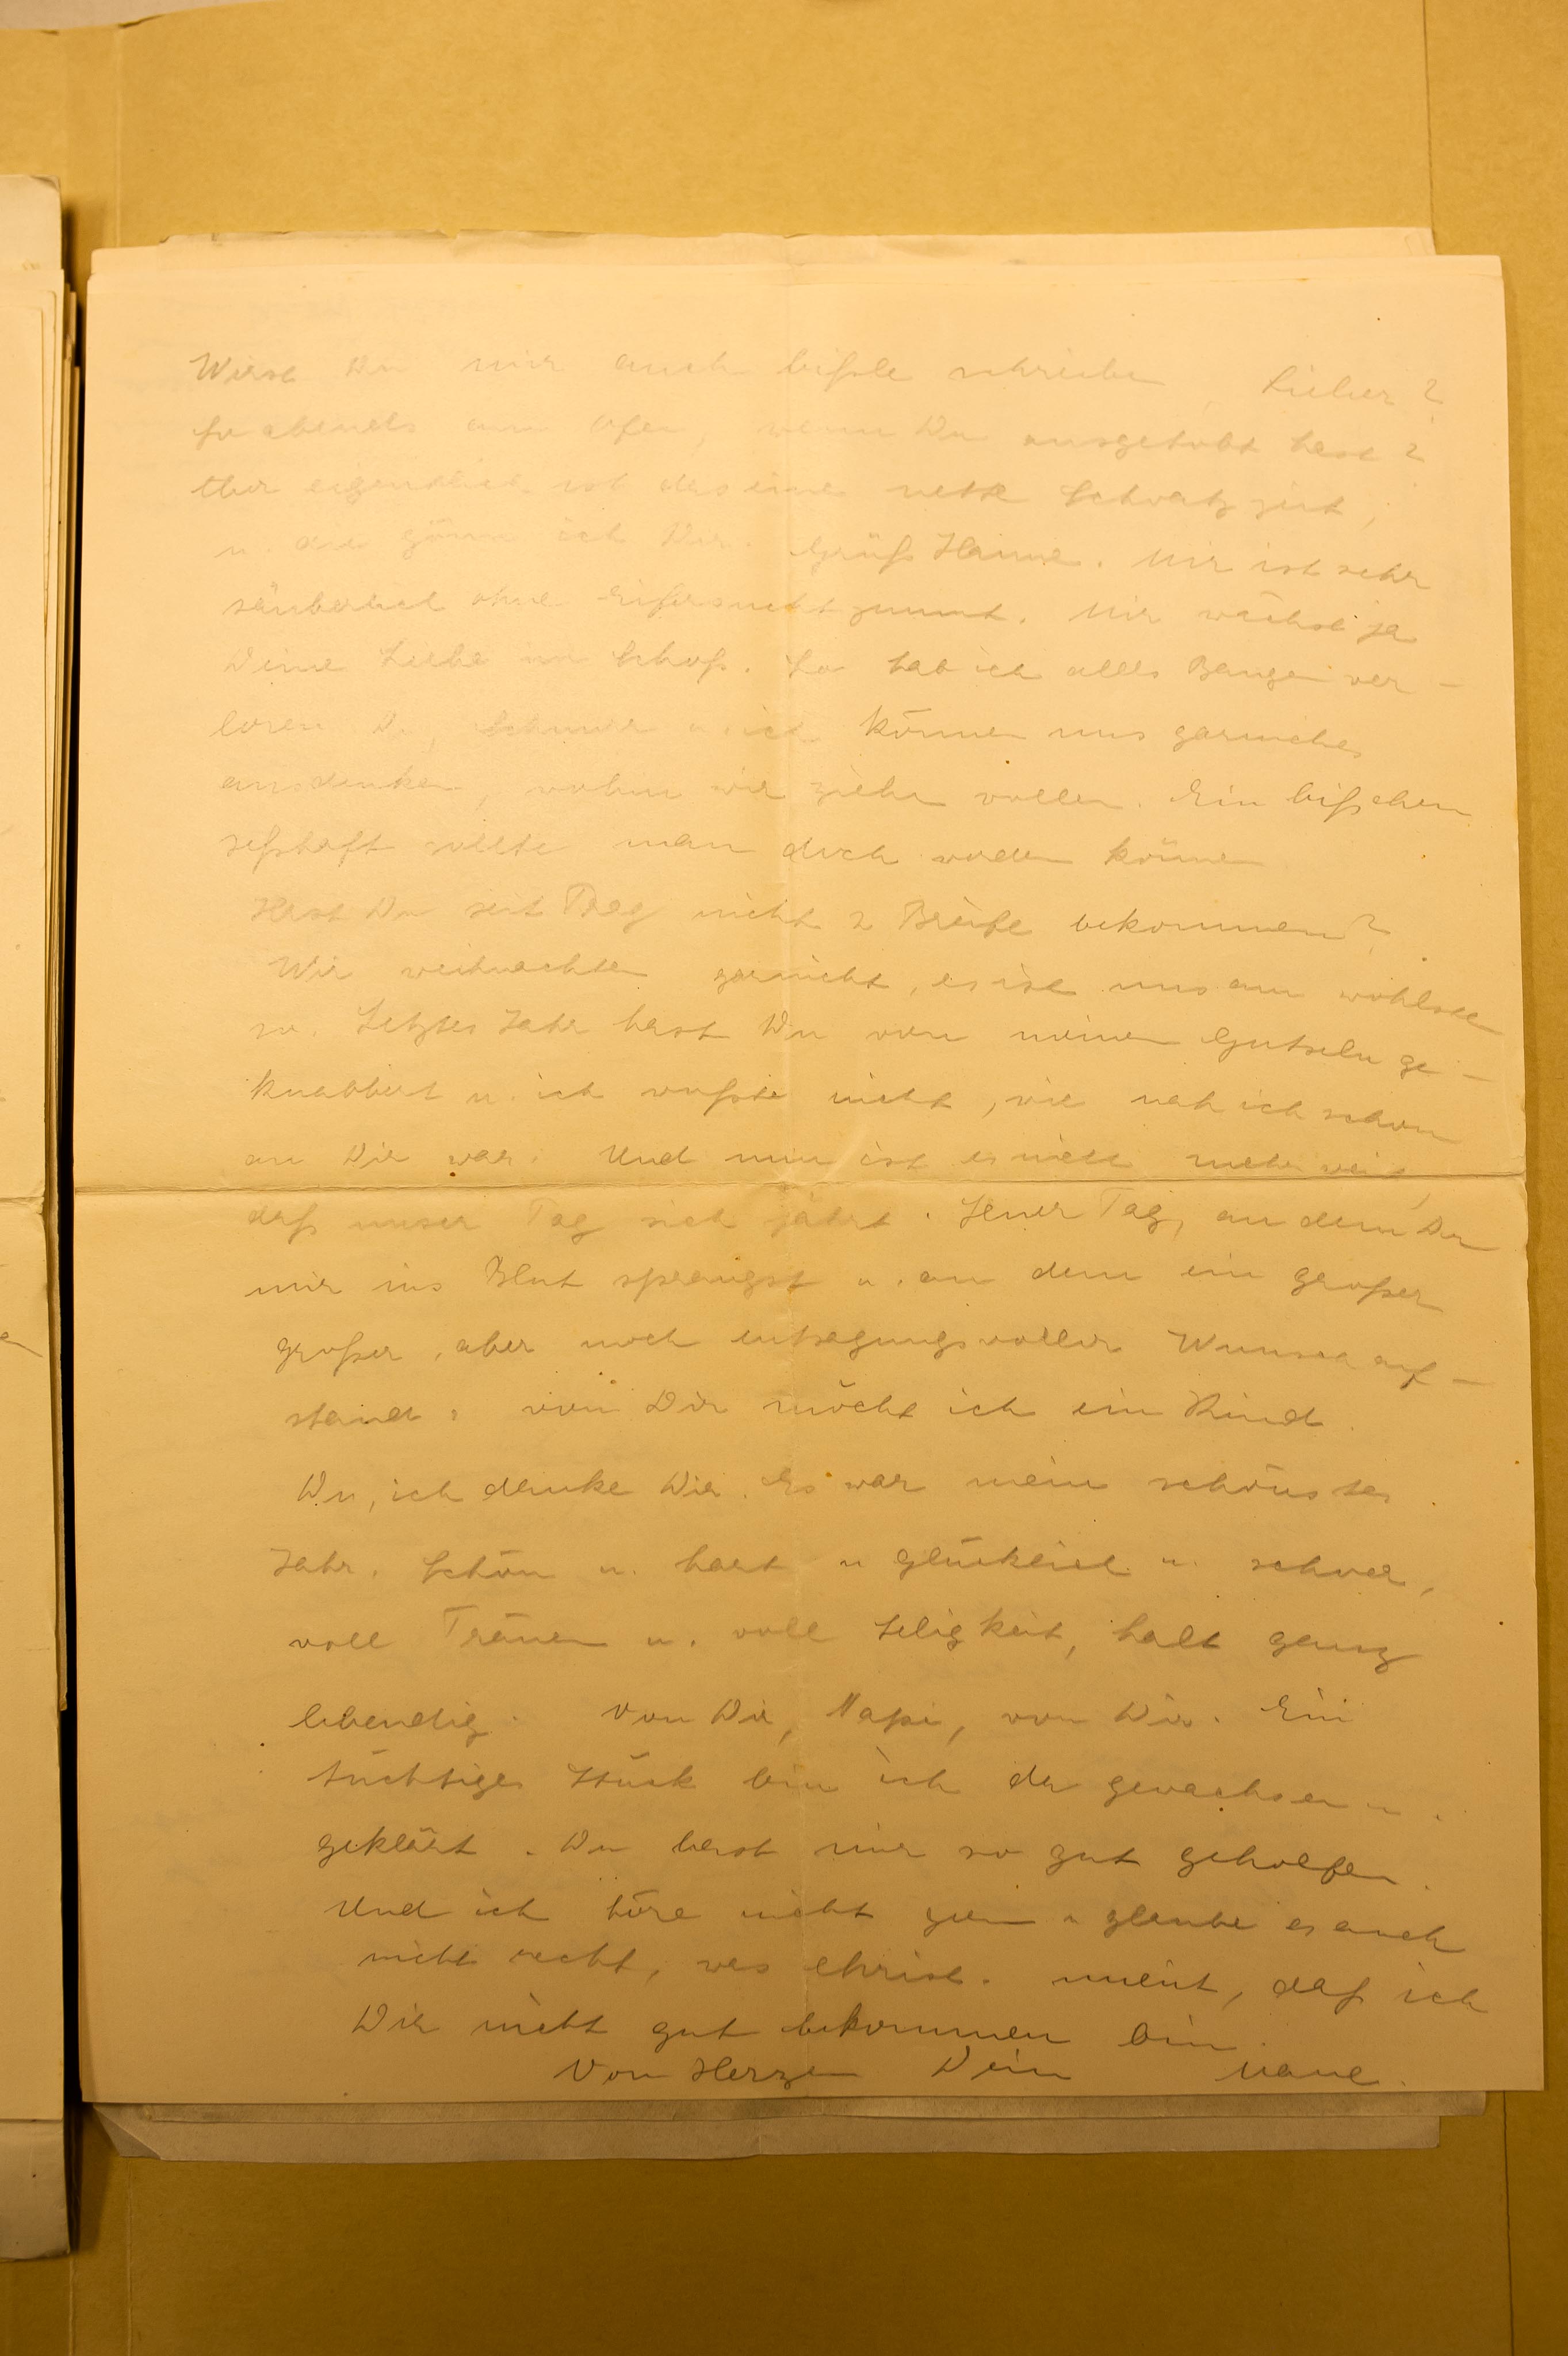 Wirst Du mir auch bißle schreiben, Lieber?
So abends am Ofen, wenn Du ausgetobt hast?
Aber eigentlich ist das eine nette Schwatzzeit,
u. die gönn ich Dir. Grüß Hanne. Mir ist sehr
säuberlich ohne Eifersucht zumut. Mir wächst ja
Deine Liebe im Schoß. So hab ich alles Bangen ver-
loren. Du, u. ich können uns garnichts
ausdenken, wohin wir ziehn wollen. Ein bißchen
seßhaft sollte man doch werden können
Hast Du seit Prag nicht 2 Briefe bekommen?
Wir weihnachten garnicht, es ist uns am wohlsten
so. Letztes Jahr hast Du von meinen Gutseln ge-
knabbert u. ich wußte nicht, wie nah ich schon
an Dir war. Und nun ist es nicht mehr weit,
daß unser Tag sich jährt. Jener Tag, an dem Du
mir ins Blut sprangst u. an dem ein großer
großer, aber noch entsagungsvoller Wunsch auf-
stand: von Dir möcht ich ein Kind.
Du, ich danke Dir. Es war mein schönstes
Jahr. Schön u. hart u glücklich u. schwer,
voll Tränen u. voll Seligkeit, halt ganz
lebendig. Von Dir, Napi, von Dir. Ein
tüchtiges Stück bin ich da gewachsen u.
geklärt. Du hast mir so gut geholfen.
Und ich höre nicht gern u glaube es auch
nicht recht, was Christ. meint, daß ich
Dir nicht gut bekommen bin.
Von Herzen Dein Nane.